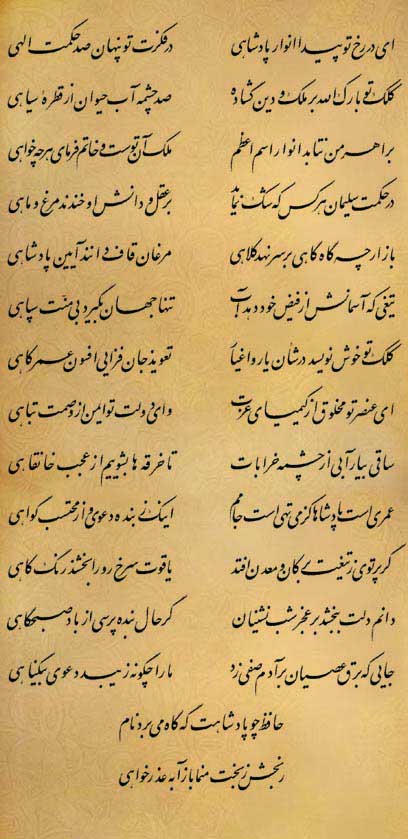 ای در رخ تو پیدا انوار پادشاهی در فکرت تو پنهان صد حکمت الهی
کلک تو بارک الله بر ملک و دین گشاده صد چشمه آب حیوان از قطره سیاهی
بر اهرمن نتابد انوار اسم اعظم ملک آن توست و خاتم فرمای هر چه خواهی
در حکمت سلیمان هر کس که شک نماید بر عقل و دانش او خندند مرغ و ماهی
باز ار چه گاه گاهی بر سر نهد کلاهی مرغان قاف دانند آیین پادشاهی
تیغی که آسمانش از فیض خود دهد آب تنها جهان بگیرد بی منت سپاهی
کلک تو خوش نویسد در شان یار و اغیار تعویذ جان فزایی افسون عمر کاهی
ای عنصر تو مخلوق از کیمیای عزت و ای دولت تو ایمن از وصمت تباهی
ساقی بیار آبی از چشمه خرابات تا خرقه ها بشوییم از عجب خانقاهی
عمری است پادشاها کز می تهی است جامم اینک ز بنده دعوی و از محتسب گواهی
گر پرتوی ز تیغت بر کان و معدن افتد یاقوت سرخ رو را بخشند رنگ کاهی
دانم دلت ببخشد بر عجز شب نشینان گر حال بنده پرسی از باد صبحگاهی
جایی که برق عصیان بر آدم صفی زد ما را چگونه زیبد دعوی بیگناهی
حافظ چو پادشاهت گه گاه می برد نام
رنجش ز بخت منما باز آ به عذرخواهی